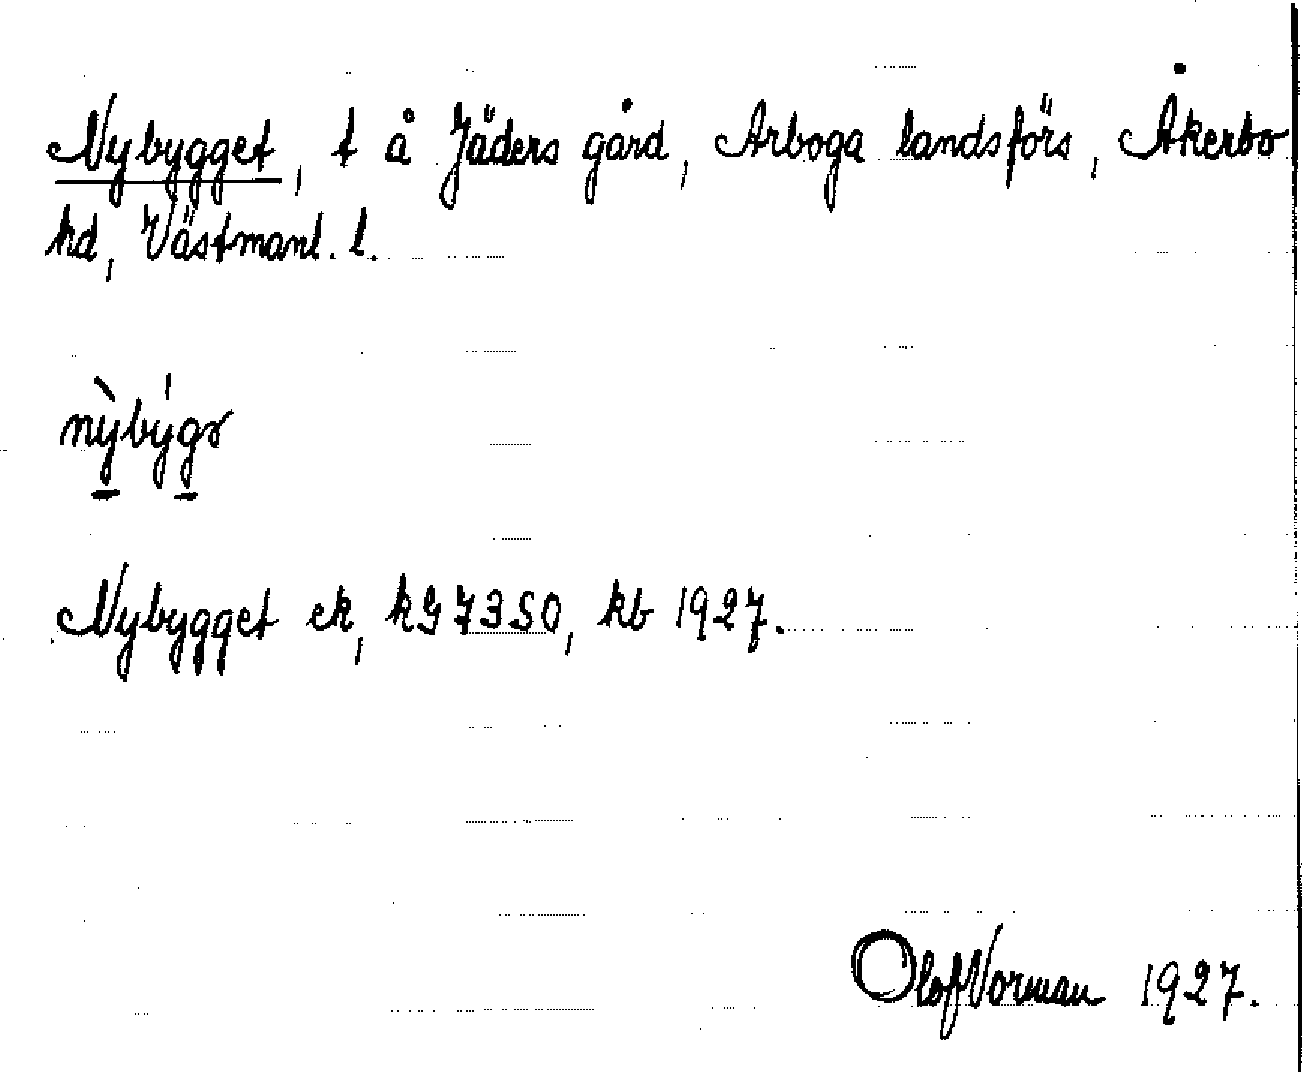 Nybygget, t å Jäders gård, Arboga landsförs, Åkerbo
hd, Västmanl. l.
nỳbýgə
Nybygget ek, kG7350, kb 1927.
Olof Vorman 1927.